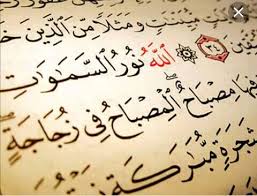 مُّبَيِّنَٰتٍ وَمَثَلًا مِّنَ ٱلَّذِينَ
٣٤ ٱللَّهُ نُورُ ٱلسَّمَٰوَٰتِ
فِيهَا مِصْبَاحٌ ۖ ٱلْمِصْبَاحُ فِى زُجَاجَةٍ
شَجَرَةٍ مُّبَٰرَكَةٍ